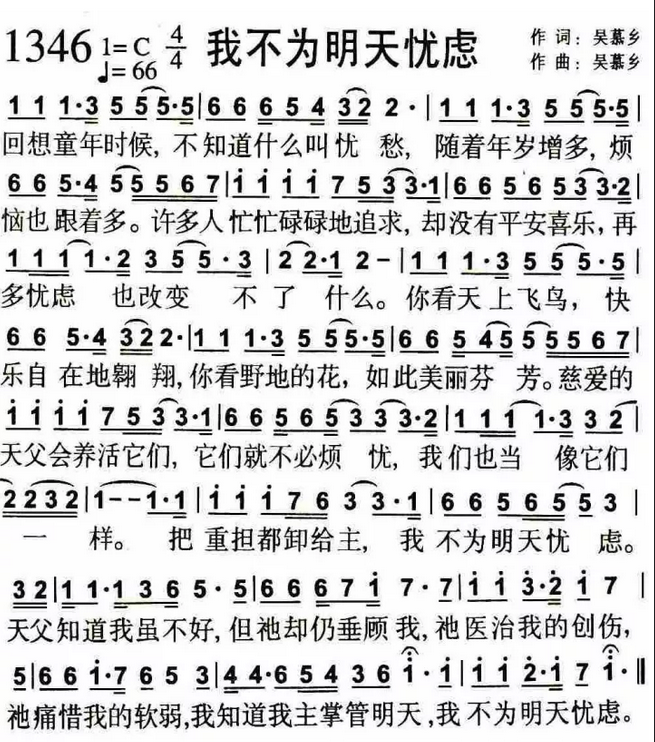 1346 1=C 4/4 ♩=66 我不为明天忧虑 作词：吴慕乡
作曲：吴慕乡
1 1 1·3 5 5 5·5|6 6 6 5 4 3 2 2 ·|1 1 1·3 5 5 5·5|
回想童年时候，不知道什么叫忧 愁，随着年岁增多，烦
6 6 5·4 5 5 5 6 7|i i i i 7 5 3 3·1|6 6 5 6 5 3 3·2|
恼也跟着多。许多人忙忙碌碌地追求，却没有平安喜乐，再
1 1 1 1·2 3 5 5·3|2 2·1 2 -|1 1 1·3 5 5 5·5|
多忧虑 也改变 不了 什么。你看天上飞鸟，快
6 6 5·4 3 2 2·|1 1 1·3 5 5 5·5|6 6 5 4 5 5 5 5 6 7|
乐自在地翱 翔，你看野地的花，如此美丽芬 芳。慈爱的
i i i i 7 5 3 3·1|6 6 5 6 5 3 3 3·2|1 1 1 1·3 3 2|
天父会养活它们，它们就不必烦 忧，我们也当 像它们
2 2 3 2|1 - - 1·1|i i i 7 6 3 3·1|6 6 5 6 5 5 3|
一 样。 把 重担都卸给主，我 不为明天忧 虑。
3 2|1 1·1 3 6 5·5|6 6 6 7 i 7·7|i i 3·2 i 7|
天父知道我虽不好，但祂却仍垂顾我，祂医治我的创伤，
5|6 6 i·7 6 5 3|4 4·6 5 4 3 6 i·i|i i 2·i 7 i·‖
祂痛惜我的软弱，我知道我主掌管明天，我不为明天忧虑。